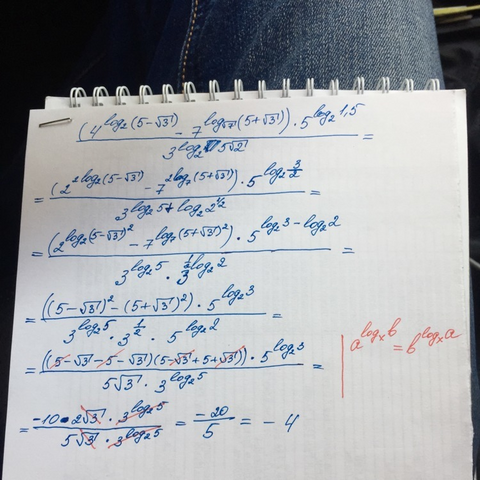 (4^{log_2(5-√3)} - 7^{log_{√7}(5+√3)}) · 5^{log_2 1,5}
3^{log_2 5√2} =
= (2^{2log_2(5-√3)} - 7^{2log_7(5+√3)}) · 5^{log_2 3/2}
3^{log_2 5 + log_2 2^{1/2}} =
= (2^{log_2(5-√3)^2} - 7^{log_7(5+√3)^2}) · 5^{log_2 3 - log_2 2}
3^{log_2 5} · 3^{1/2 log_2 2} =
= ((5-√3)^2 - (5+√3)^2) · 5^{log_2 3}
3^{log_2 5} · 3^{1/2} · 5^{log_2 2} =
= ((5-√3-5-√3)(5-√3+5+√3)) · 5^{log_2 3}
5√3 · 3^{log_2 5} =
a^{log_x b} = b^{log_x a}
= -10 · 2√3 · 3^{log_2 5}
5√3 · 3^{log_2 5} = -20/5 = -4